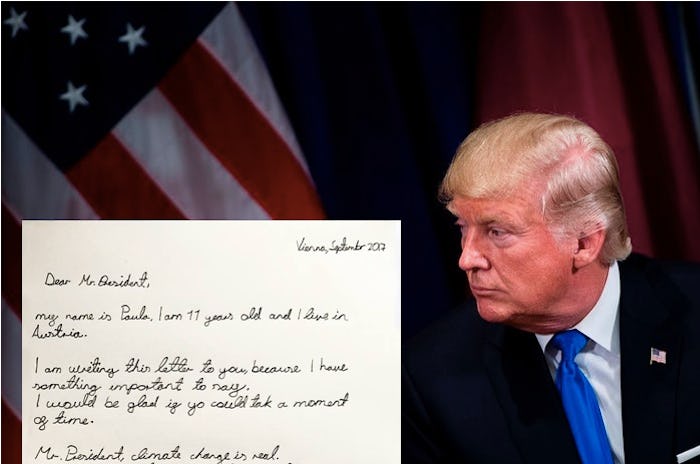 Vienna, September 2017
Dear Mr. President,
my name is Paula, I am 11 years old and I live in
Austria.
I am writing this letter to you, because I have
something important to say.
I would be glad if yo could tak a moment
of time.
Mr. President, climate change is real.